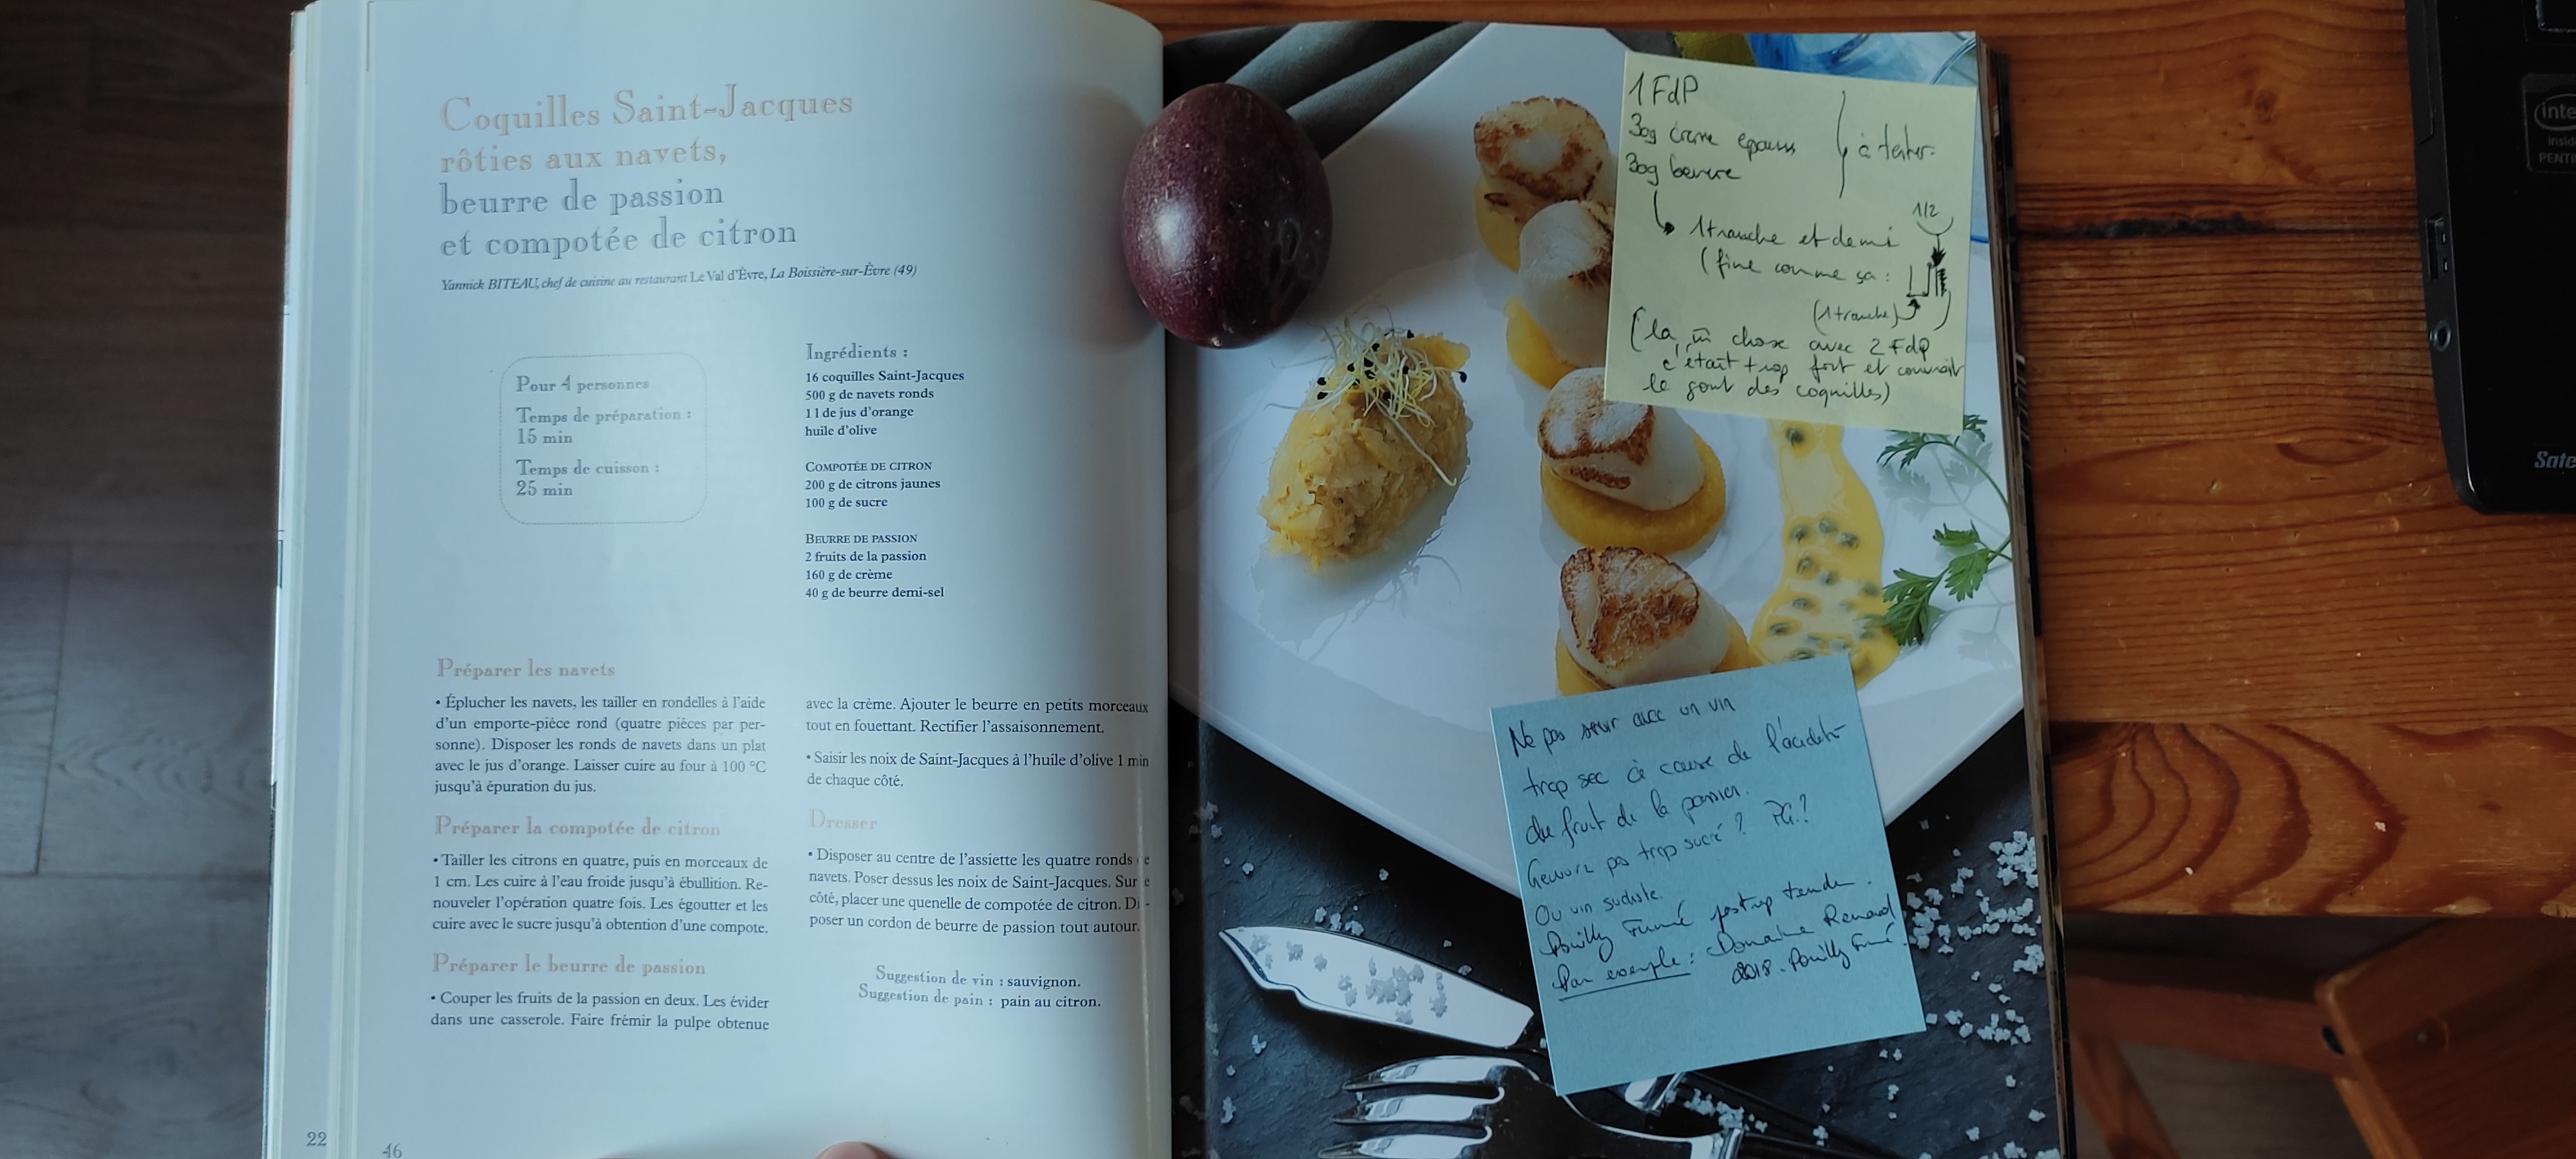 Coquilles Saint-Jacques
rôties aux navets,
beurre de passion
et compotée de citron
Yannick BITEAU, chef de cuisine au restaurant Le Val d'Èvre, La Boissière-sur-Èvre (49)
Pour 4 personnes
Temps de préparation :
15 min
Temps de cuisson :
25 min
Ingrédients :
16 coquilles Saint-Jacques
500 g de navets ronds
1 l de jus d'orange
huile d'olive
COMPOTÉE DE CITRON
200 g de citrons jaunes
100 g de sucre
BEURRE DE PASSION
2 fruits de la passion
160 g de crème
40 g de beurre demi-sel
Préparer les navets
• Éplucher les navets, les tailler en rondelles à l'aide
d'un emporte-pièce rond (quatre pièces par per-
sonne). Disposer les ronds de navets dans un plat
avec le jus d'orange. Laisser cuire au four à 100 °C
jusqu'à épuration du jus.
Préparer la compotée de citron
• Tailler les citrons en quatre, puis en morceaux de
1 cm. Les cuire à l'eau froide jusqu'à ébullition. Re-
nouveler l'opération quatre fois. Les égoutter et les
cuire avec le sucre jusqu'à obtention d'une compote.
Préparer le beurre de passion
• Couper les fruits de la passion en deux. Les évider
dans une casserole. Faire frémir la pulpe obtenue
avec la crème. Ajouter le beurre en petits morceaux
tout en fouettant. Rectifier l'assaisonnement.
• Saisir les noix de Saint-Jacques à l'huile d'olive 1 min
de chaque côté.
Dresser
• Disposer au centre de l'assiette les quatre ronds e
navets. Poser dessus les noix de Saint-Jacques. Sur e
côté, placer une quenelle de compotée de citron. Di -
poser un cordon de beurre de passion tout autour.
Suggestion de vin : sauvignon.
Suggestion de pain : pain au citron.
22
46
1 FdP
30g crème epaiss
30g beurre
à tester.
1/2
1 tranche et demi
(fine comme ça :
(1 tranche)
(la, m̄ chose avec 2 FdP
c'était trop fort et couvrait
le gout des coquilles)
Ne pas servir avec un vin
trop sec à cause de l'acidité
du fruit de la passion.
Gewurz pas trop sucré ?
Ou vin sudiste.
Pouilly Fumé pas trop tendu.
Par exemple : Domaine Renaud
2018. Pouilly Fumé.
intel
inside
PENTI
Sate